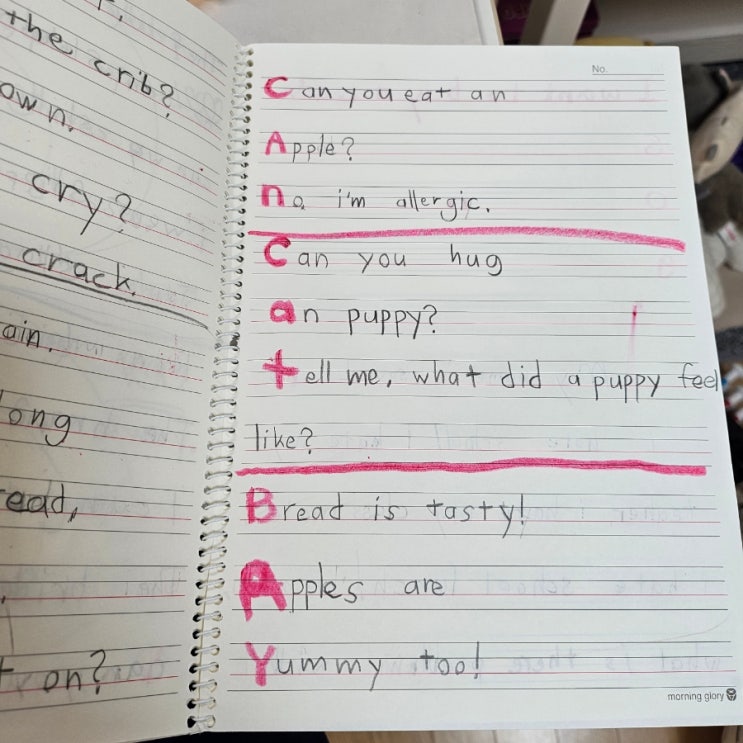 the crib?
own.
cry?
crack.
ain.
long
ead,
on?
No.
Can you eat an
Apple?
no, i'm allergic.
Can you hug
an puppy?
tell me, what did a puppy feel
like?
Bread is tasty!
Apples are
Yummy too!
morning glory